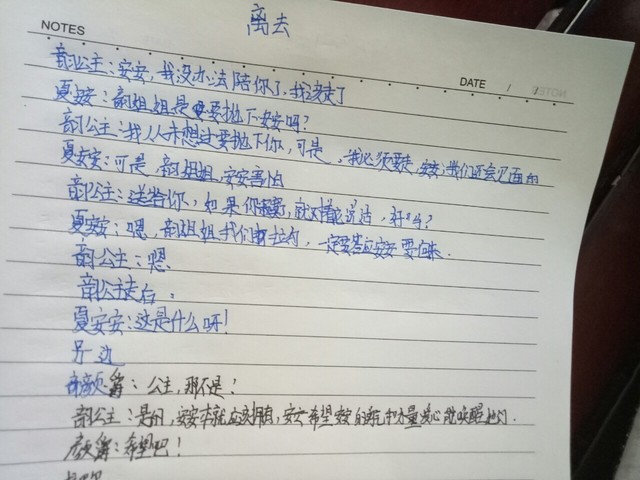 离去
NOTES
DATE / /
韵公主：安安，我没办法陪你了，我要走了
夏安安：韵姐姐是要抛下安安吗？
韵公主：我从未想过要抛下你，可是，我必须要走，安安，我们还会见面的
夏安安：可是，韵姐姐，安安害怕
韵公主：送给你，如果你想我了，就对着它说话，好吗？
夏安安：嗯，韵姐姐我们拉勾，一定要答应安安要回来。
韵公主：嗯
韵公主走后。
夏安安：这是什么呀！
另一边
：公主，那不是！
韵公主：是的，安安本就应该拥有，安安希望的和力量能唤醒她们.
：希望吧！